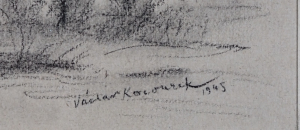 Václav Kocourek 1945